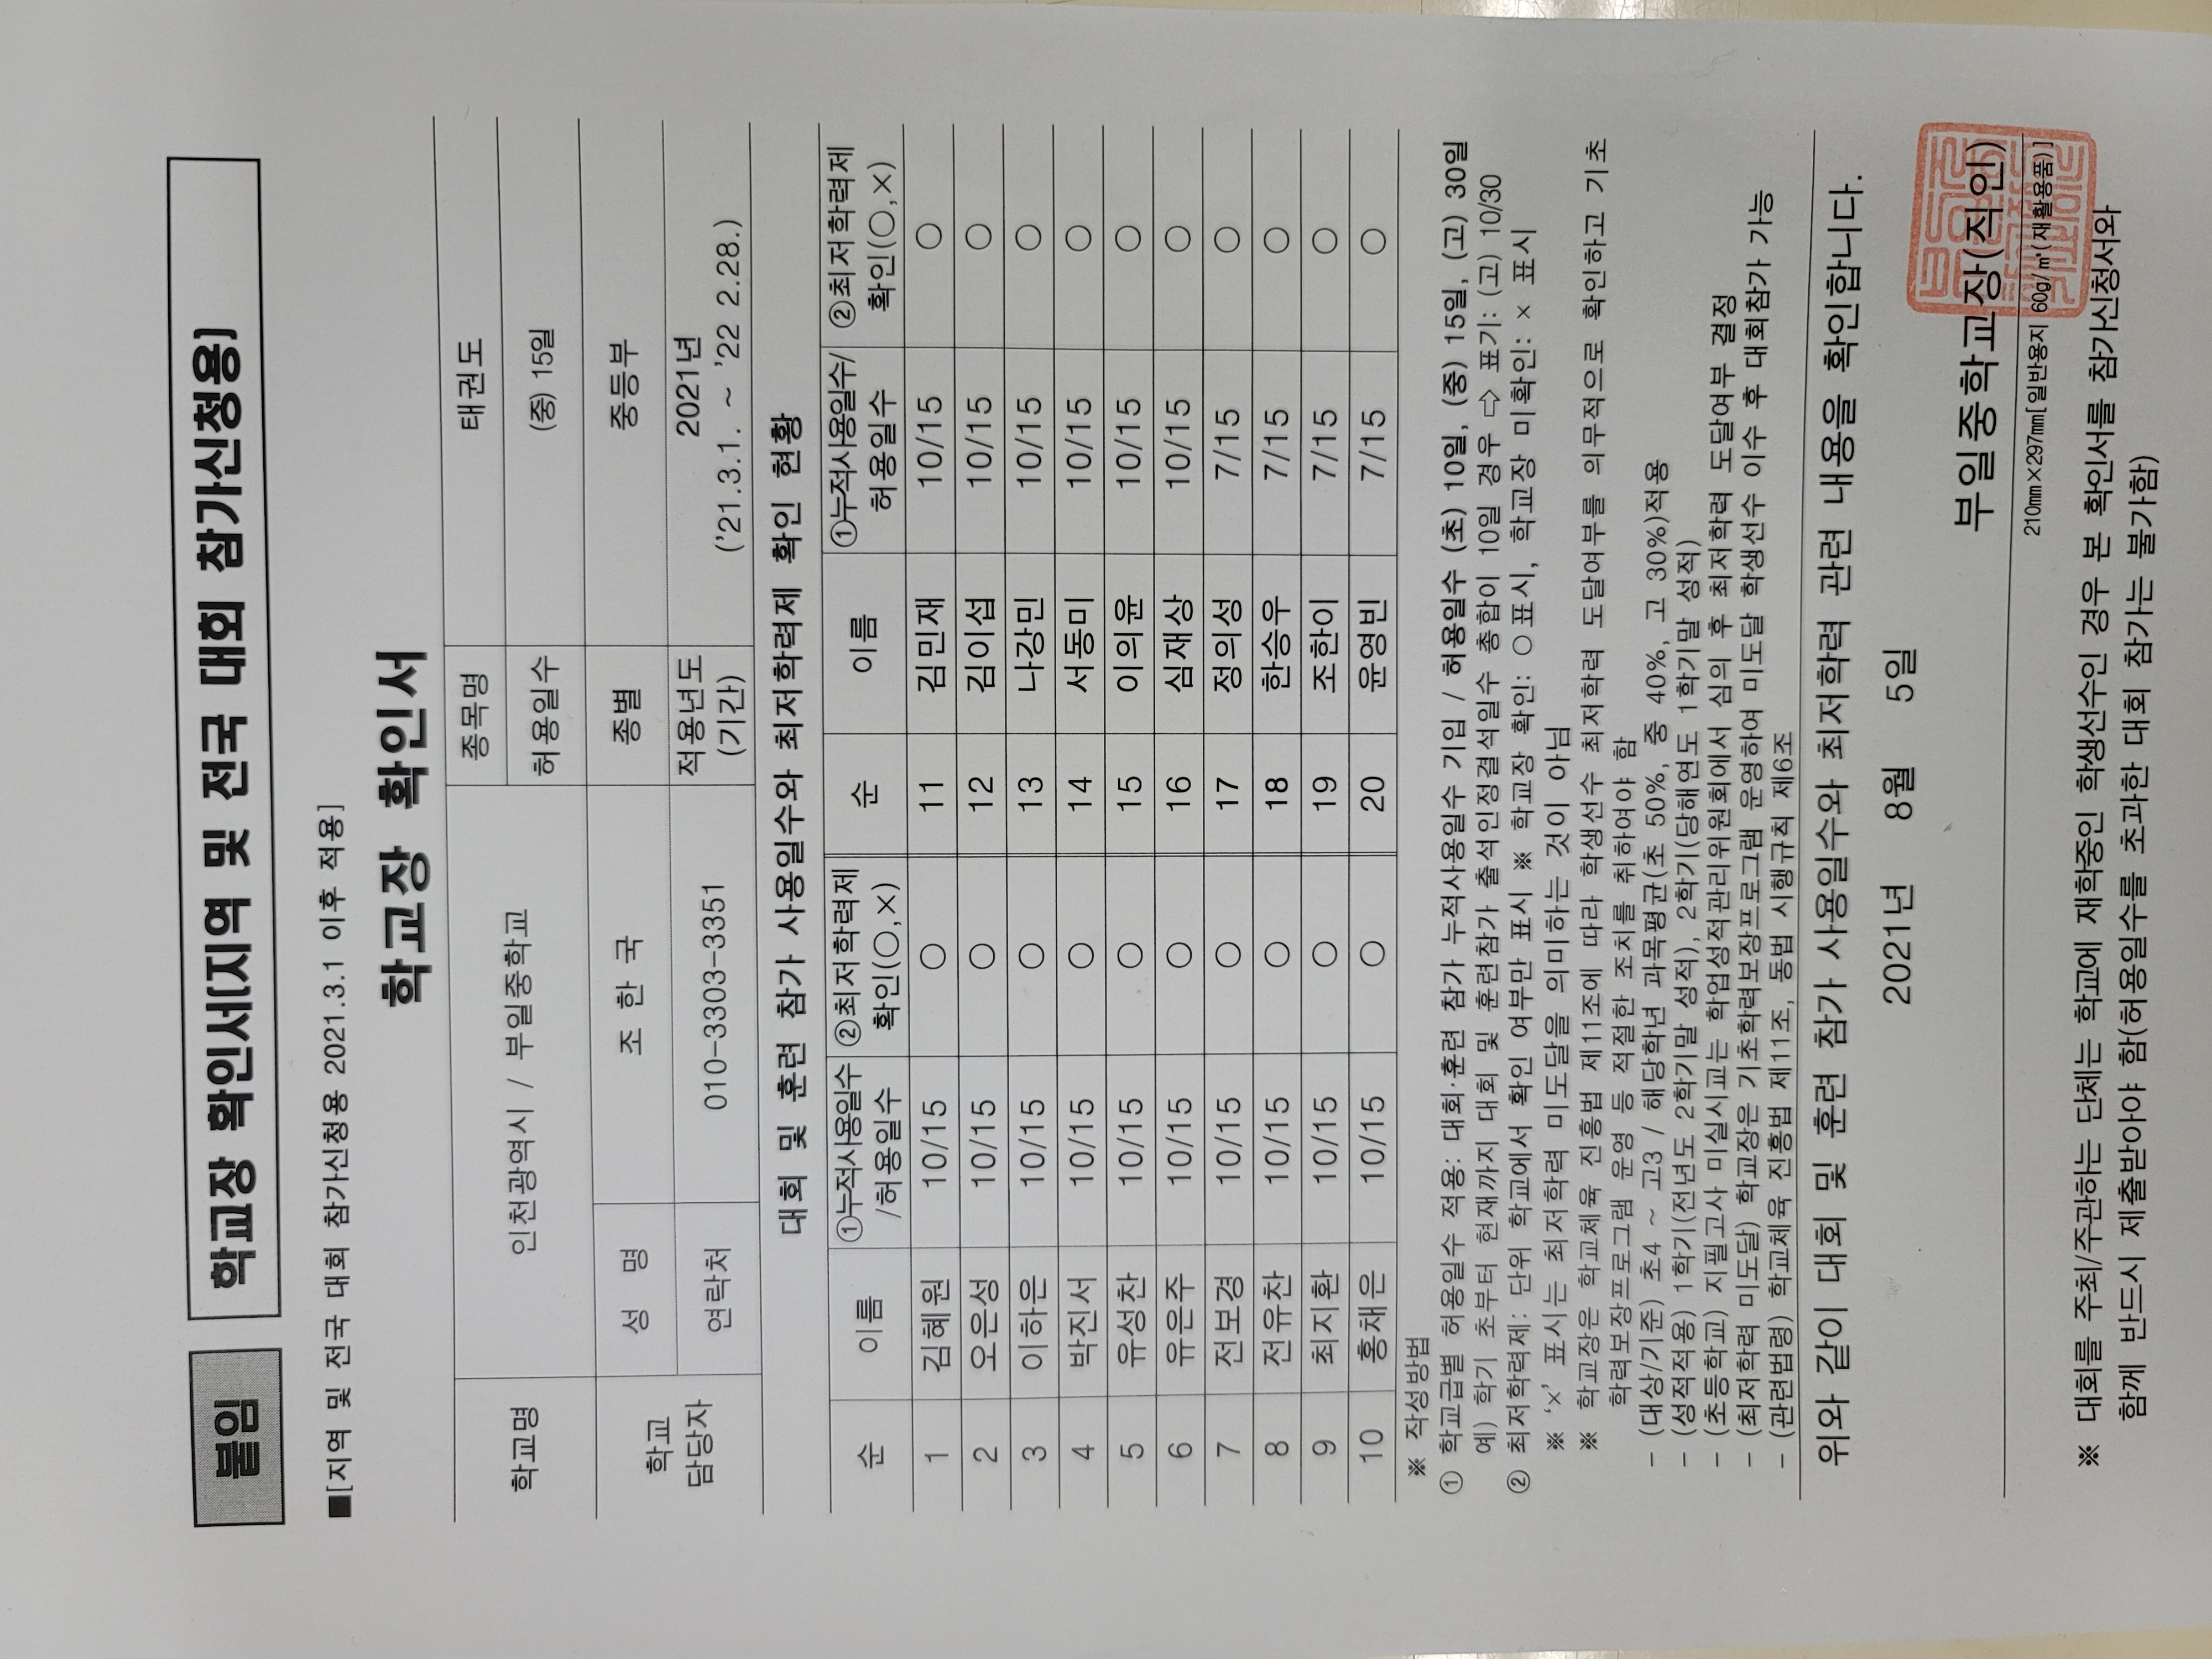 붙임
학교장 확인서[지역 및 전국 대회 참가신청용]
■[지역 및 전국 대회 참가신청용 2021.3.1 이후 적용]
학교장 확인서
학교명 인천광역시 / 부일중학교 종목명 태권도
허용일수 (중) 15일
학교 담당자 성 명 조 한 국 종별 중등부
연락처 010-3303-3351 적용년도 (기간) 2021년
('21.3.1. ~ '22 2.28.)
대회 및 훈련 참가 사용일수와 최저학력제 확인 현황
순 이름 ①누적사용일수 /허용일수 ②최저학력제 확인(○,×) 순 이름 ①누적사용일수/ 허용일수 ②최저학력제 확인(○,×)
1 김혜원 10/15 ○ 11 김민재 10/15 ○
2 오은성 10/15 ○ 12 김이섭 10/15 ○
3 이하은 10/15 ○ 13 나강민 10/15 ○
4 박진서 10/15 ○ 14 서동미 10/15 ○
5 유성찬 10/15 ○ 15 이의윤 10/15 ○
6 유은주 10/15 ○ 16 심재상 10/15 ○
7 전보경 10/15 ○ 17 정의성 7/15 ○
8 전유찬 10/15 ○ 18 한승우 7/15 ○
9 최지환 10/15 ○ 19 조한이 7/15 ○
10 홍채은 10/15 ○ 20 윤영빈 7/15 ○
※ 작성방법
① 학교급별 허용일수 적용: 대회·훈련 참가 누적사용일수 기입 / 허용일수 (초) 10일, (중) 15일, (고) 30일
예) 학기 초부터 현재까지 대회 및 훈련참가 출석인정결석일수 총합이 10일 경우 ⇨ 표기: (고) 10/30
② 최저학력제: 단위 학교에서 확인 여부만 표시 ※ 학교장 확인: ○ 표시, 학교장 미확인: × 표시
※ '×' 표시는 최저학력 미도달을 의미하는 것이 아님
※ 학교장은 학교체육 진흥법 제11조에 따라 학생선수 최저학력 도달여부를 의무적으로 확인하고 기초
학력보장프로그램 운영 등 적절한 조치를 취하여야 함
- (대상/기준) 초4 ~ 고3 / 해당학년 과목평균(초 50%, 중 40%, 고 30%)적용
- (성적적용) 1학기(전년도 2학기말 성적), 2학기(당해연도 1학기말 성적)
- (초등학교) 지필고사 미실시교는 학업성적관리위원회에서 심의 후 최저학력 도달여부 결정
- (최저학력 미도달) 학교장은 기초학력보장프로그램 운영하여 미도달 학생선수 이수 후 대회참가 가능
- (관련법령) 학교체육 진흥법 제11조, 동법 시행규칙 제6조
위와 같이 대회 및 훈련 참가 사용일수와 최저학력 관련 내용을 확인합니다.
2021년 8월 5일
부일중학교장(직인)
210㎜×297㎜[일반용지 60g/㎡(재활용품)]
※ 대회를 주최/주관하는 단체는 학교에 재학중인 학생선수인 경우 본 확인서를 참가신청서와
함께 반드시 제출받아야 함(허용일수를 초과한 대회 참가는 불가함)